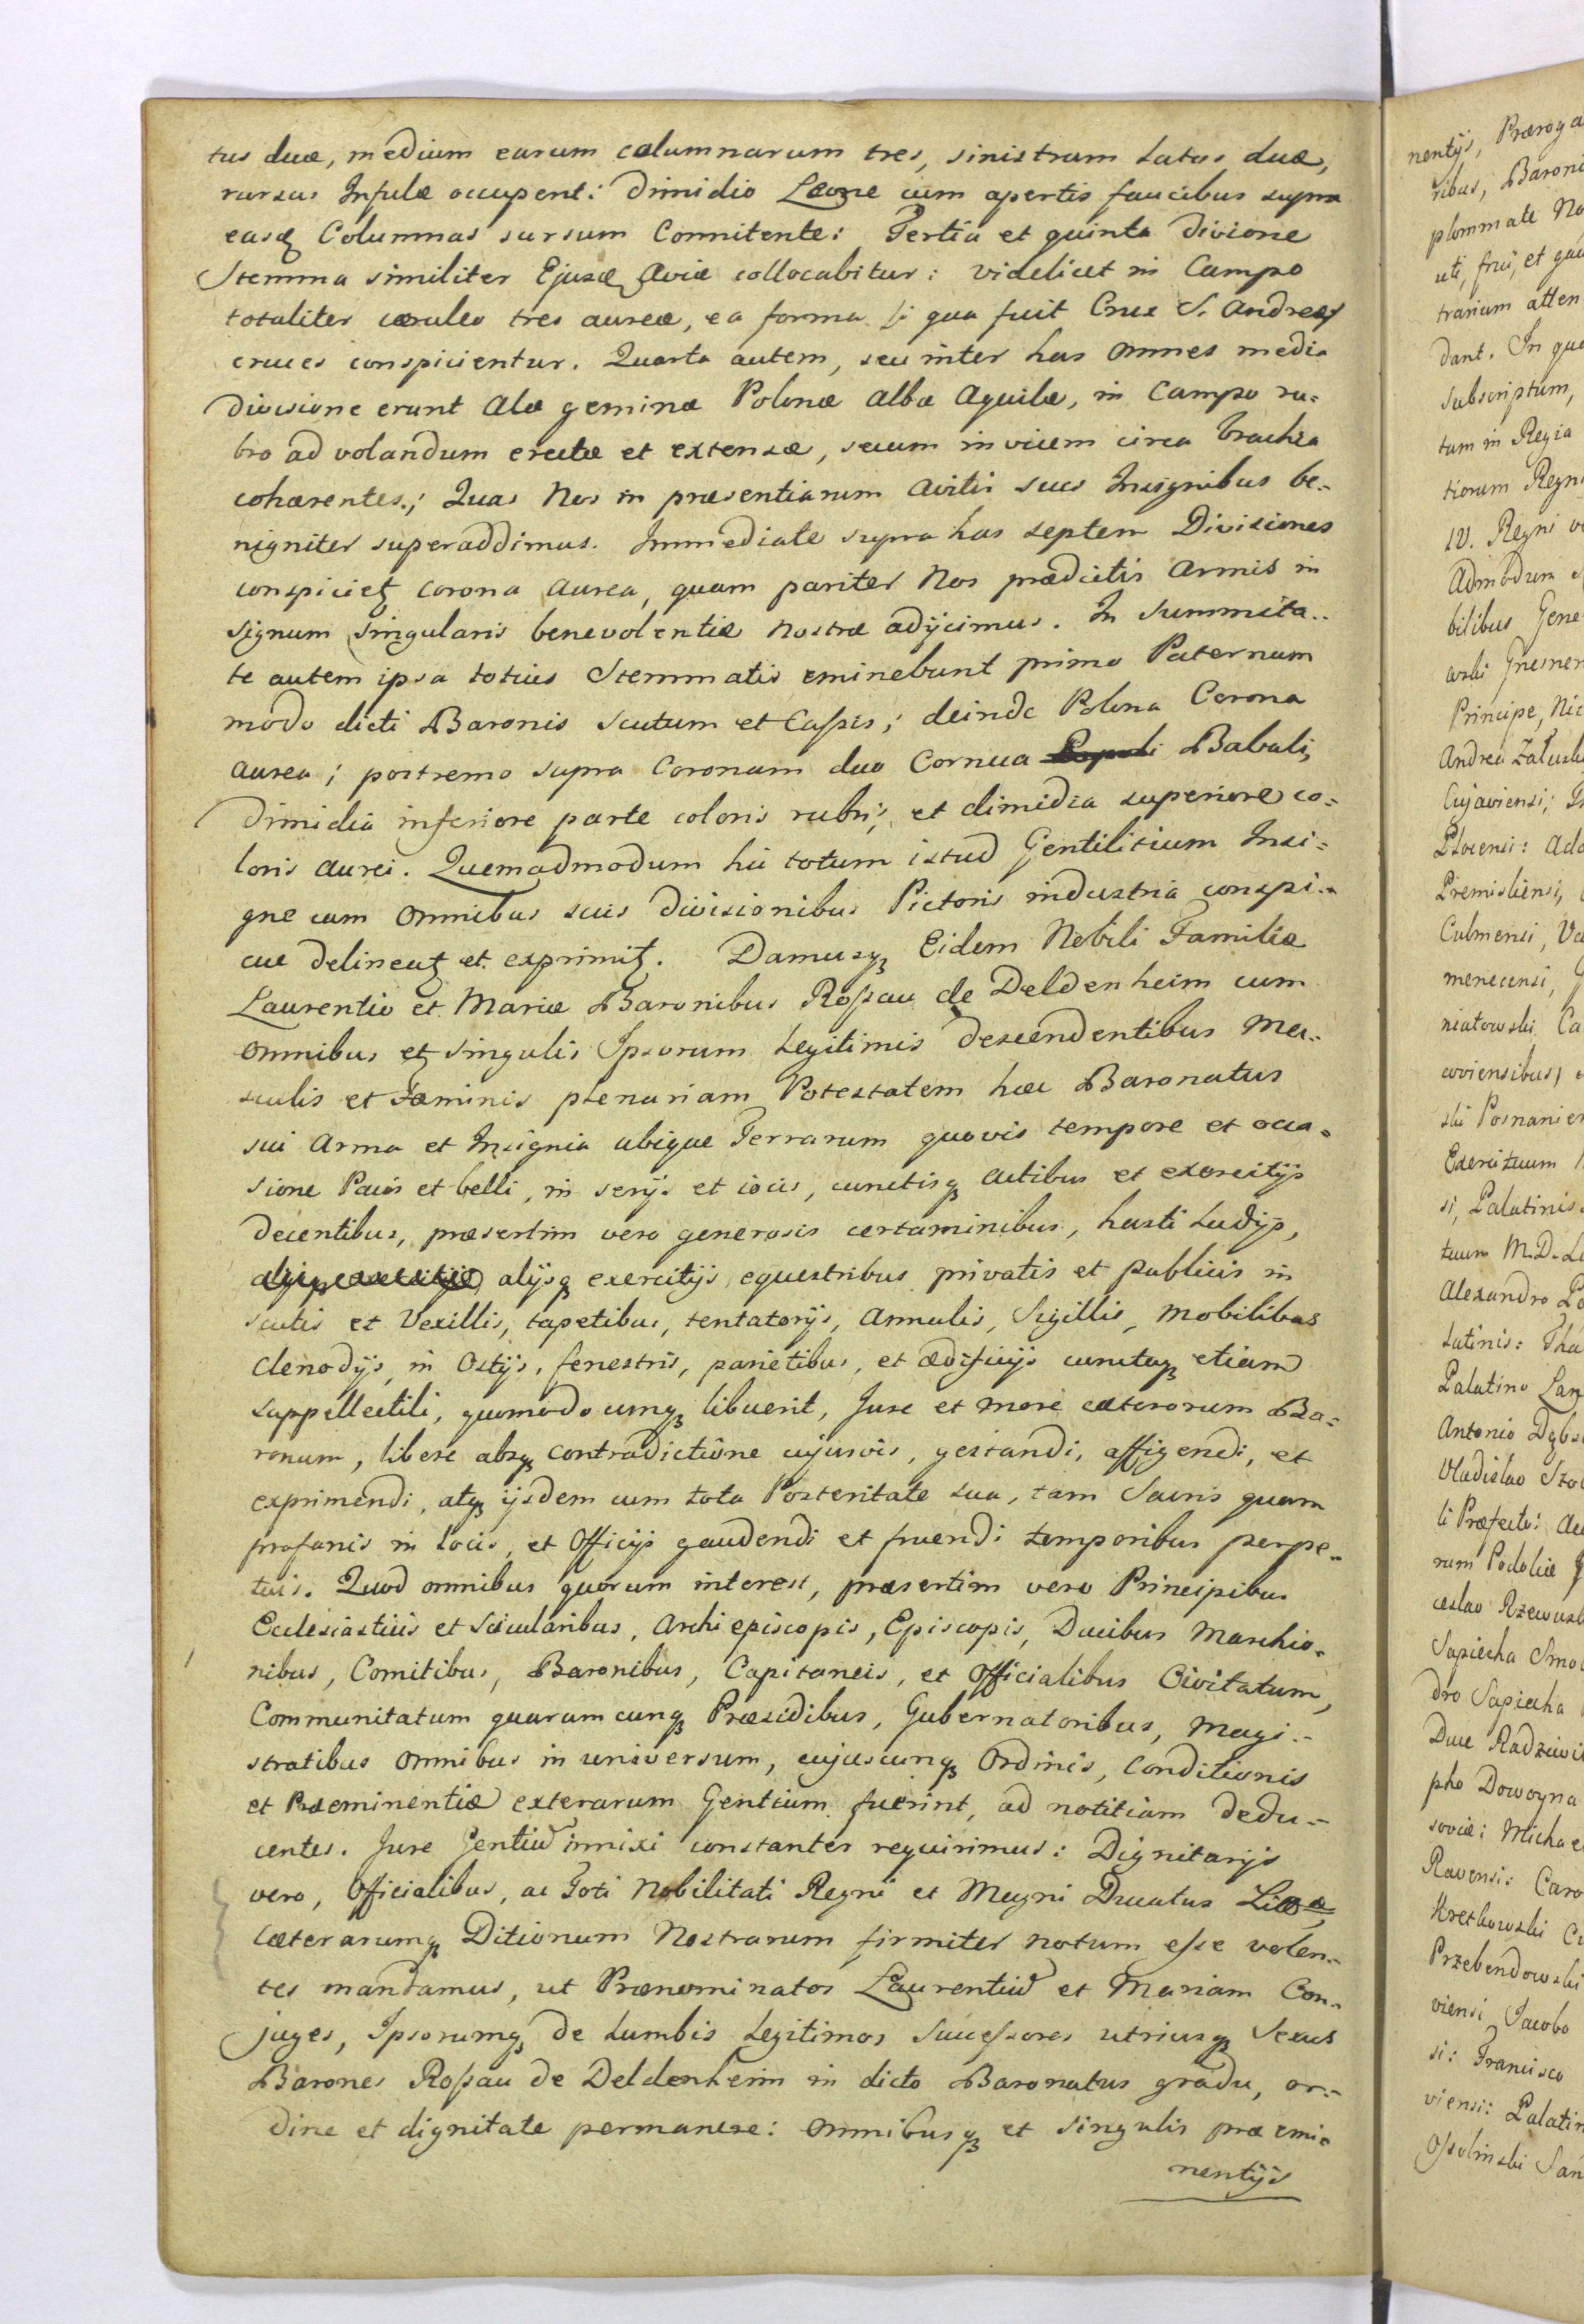 tus duæ, medium earum columnarum tres, sinistrum Latus duæ,
rursus Infulæ occupent: Dimidio Leone cum apertis faucibus supra
easq Columnas sursum Connitente: Tertia et quinta Divione
Stemma similiter Ejusdæ Aviæ collocabitur: videlicet in Campo
totaliter cæruleo tres aureæ, ea forma qua fuit Crux S. Andreæ
cruces conspicientur. Quarta autem, seu inter has omnes media
divisione erunt Alæ geminæ Polonæ Albæ Aquilæ, in Campo ru-
bro ad volandum erectæ et extensæ, secum invicem circa brachia
cohærentes.; Quas Nos in præsentiarum Avitis suis Insignibus be-
nigniter superaddimus. Immediate supra has septem Divisiones
conspiciet Corona Aurea, quam pariter Nos prædictis Armis in
signum singularis benevolentiæ Nostræ adijcimus. In Summita-
te autem ipsa totius Stemmatis eminebunt primo Paternum
modo dicti Baronis Scutum et Cassis; deinde Polona Corona
Aurea; postremo supra Coronam duo Cornua Babali,
Dimidia inferiore parte coloris rubri, et dimidia superiore co-
loris Aurei. Quemadmodum hic totum istud Gentilitium Insi-
gne cum omnibus suis divisionibus Pictoris industria conspi-
cue delineat et exprimit. Damusq Eidem Nobili Familiæ
Laurentio et Mariæ Baronibus Rossau de Deldenheim cum
omnibus et singulis Ipsorum Legitimis descendentibus Ma-
sculis et Fæminis plenariam Potestatem hæc Baronatus
sui Arma et Insignia ubique Terrarum quovis tempore et occa-
sione Pacis et belli, in serijs et iocis, cunctisq actibus et exercitijs
decentibus, præsertim vero generosis certaminibus, hasti Ludijs,
alijsq exercitijs equestribus privatis et publicis in
scutis et Vexillis, tapetibus, tentatorijs, Annulis, Sigillis, Mobilibus
clenodijs, in Ostijs, fenestris, parietibus, et ædificijs cunctaq etiam
suppellectili, quomodocumq libuerit, Jure et more cæterorum Ba-
ronum, libere absq contradictione cujusvis, gestandi, affigendi, et
exprimendi, atq ijsdem cum tota Posteritate sua, tam Sacris quam
profanis in locis, et Officijs gaudendi et fruendi temporibus perpe-
tuis. Quod omnibus quorum interest, præsertim vero Principibus
Ecclesiasticis et Sæcularibus, Archiepiscopis, Episcopis, Ducibus Marchio-
nibus, Comitibus, Baronibus, Capitaneis, et Officialibus Civitatum,
Communitatum quarumcunq Præsidibus, Gubernatoribus, Magi-
stratibus omnibus in universum, cujuscunq Ordinis, Conditionis
et Præeminentiæ exterarum Gentium fuerint, ad notitiam dedu-
centes. Jure Gentiu innixi constanter requirimus: Dignitarijs
vero, Officialibus, ac Toti Nobilitati Regni et Magni Ducatus
Cæterarumq Ditionum Nostrarum firmiter notum esse volen-
tes mandamus, ut Prænominatos Laurentiu et Mariam Con-
juges, Ipsorumq de Lumbis Legitimos Successores utriusq Sexus
Barones Rossau de Deldenheim in dicto Baronatus gradu, or-
dine et dignitate permanere: omnibusq et singulis præemi-
nentijs
nentijs, Præroga
ribus, Baroni
plommate No
uti, frui, et gau
trarium atten
dant. In quo
Subscriptum,
tum in Regia
tiorum Regni
IV. Regni v
Admodum
bilibus Gene
Gnesnen
Principe, Nic
Andrea Załusk
Cujaviensi;
Plocensi: Ada
Premisliensi,
Culmensi, Va
menecensi,
niatowski Ca
coviensibus,
ski Posnanien
Exercituum
si, Palatinis
tuum M.D.L
Alexandro Po
latinis: Tha
Palatino
Antonio Dębs
Vladislao
li Præfecto:
rum Podoliæ
ceslao Rzewusk
Sapiecha Smo
dro Sapiecha
Duce Radziwi
pho Dowoyna
soviæ: Michae
Ravensi: Caro
Kretkowski C
Przebendowski
viensi Jacobo
si: Francisco
viensi: Palatin
Ossolinski San